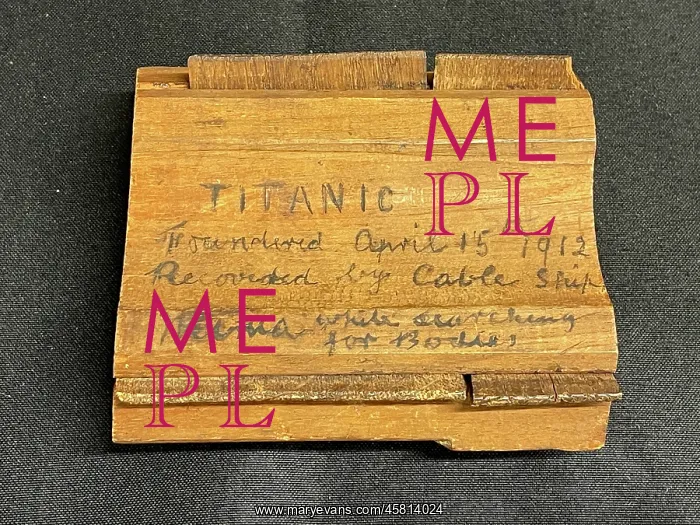 TITANIC
Foundered April 15 1912
Recovered by Cable Ship
while searching
for Bodies
ME
PL
ME
PL
www.maryevans.com/45814024